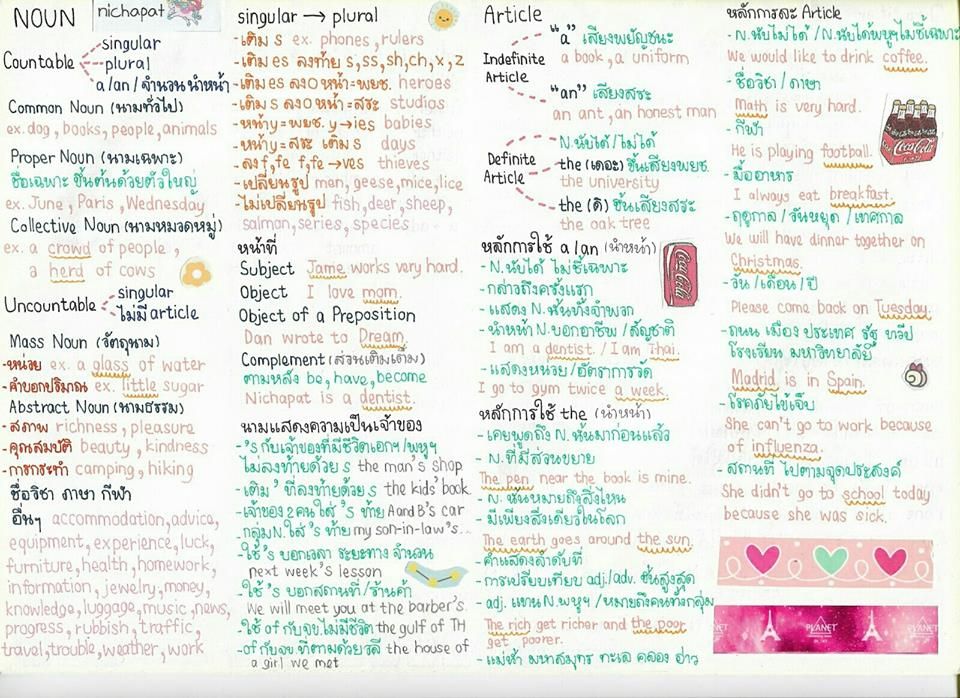 NOUN
nichapat
Countable
singular
plural
a/an/จำนวนนำหน้า
Common Noun (นามทั่วไป)
ex. dog, books, people, animals
Proper Noun (นามเฉพาะ)
ชื่อเฉพาะ ขึ้นต้นด้วยตัวใหญ่
ex. June, Paris, Wednesday
Collective Noun (นามหมวดหมู่)
ex. a crowd of people,
a herd of cows
Uncountable
singular
ไม่มี article
Mass Noun (วัตถุนาม)
-หน่วย ex. a glass of water
-คำบอกปริมาณ ex. little sugar
Abstract Noun (นามธรรม)
-สภาพ richness, pleasure
-คุณสมบัติ beauty, kindness
-การกระทำ camping, hiking
ชื่อวิชา ภาษา กีฬา
อื่นๆ accommodation, advice,
equipment, experience, luck,
furniture, health, homework,
information, jewelry, money,
knowledge, luggage, music, news,
progress, rubbish, traffic,
travel, trouble, weather, work
singular → plural
-เติม s ex. phones, rulers
-เติม es ลงท้าย s, ss, sh, ch, x, z
-เติม es ลง o หน้า=พยช. heroes
-เติม s ลง o หน้า=สระ studios
-หน้า y=พยช. y→ies babies
-หน้า y=สระ เติม s days
-ลง f, fe f, fe→ves thieves
-เปลี่ยนรูป man, geese, mice, lice
-ไม่เปลี่ยนรูป fish, deer, sheep,
salmon, series, species
หน้าที่
Subject Jame works very hard.
Object I love mom.
Object of a Preposition
Dan wrote to Dream.
Complement (ส่วนเติมเต็ม)
ตามหลัง be, have, become
Nichapat is a dentist.
นามแสดงความเป็นเจ้าของ
-'s กับเจ้าของที่มีชีวิตเอกฯ/พหูฯ
ไม่ลงท้ายด้วย s the man's shop
-เติม ' ที่ลงท้ายด้วย s the kids' book
-เจ้าของ 2 คนใส่ 's ท้าย A and B's car
-กลุ่ม N. ใส่ 's ท้าย my son-in-law's...
-ใช้ 's บอกเวลา ระยะทาง จำนวน
next week's lesson
-ใช้ 's บอกสถานที่/ร้านค้า
We will meet you at the barber's.
-ใช้ of กับจข.ไม่มีชีวิต the gulf of TH
-of กับจข.ที่ตามด้วยวลี the house of
a girl we met
Article
Indefinite
Article
"a" เสียงพยัญชนะ
a book, a uniform
"an" เสียงสระ
an ant, an honest man
Definite
Article
N.นับได้/ไม่ได้
the (เดอะ) ขึ้นเสียงพยช.
the university
the (ดิ) ขึ้นเสียงสระ
the oak tree
หลักการใช้ a/an (นำหน้า)
- N.นับได้ ไม่ชี้เฉพาะ
- กล่าวถึงครั้งแรก
- แสดง N.นั้นทั้งจำพวก
- นำหน้า N.บอกอาชีพ/สัญชาติ
I am a dentist. / I am Thai.
- แสดงหน่วย/อัตราการวัด
I go to gym twice a week.
หลักการใช้ the (นำหน้า)
- เคยพูดถึง N.นั้นมาก่อนแล้ว
- N.ที่มีส่วนขยาย
The pen near the book is mine.
- N.นั้นหมายถึงสิ่งไหน
- มีเพียงสิ่งเดียวในโลก
The earth goes around the sun.
- คำแสดงลำดับที่
- การเปรียบเทียบ adj./adv. ขั้นสูงสุด
- adj. แทน N.พหูฯ/หมายถึงคนทั้งกลุ่ม
The rich get richer and the poor
get poorer.
- แม่น้ำ มหาสมุทร ทะเล คลอง อ่าว
หลักการละ Article
- N.นับไม่ได้/N.นับได้พหูฯไม่ชี้เฉพาะ
We would like to drink coffee.
- ชื่อวิชา/ภาษา
Math is very hard.
- กีฬา
He is playing football.
- มื้ออาหาร
I always eat breakfast.
- ฤดูกาล/วันหยุด/เทศกาล
We will have dinner together on
Christmas.
- วัน/เดือน/ปี
Please come back on Tuesday.
- ถนน เมือง ประเทศ รัฐ ทวีป
โรงเรียน มหาวิทยาลัย
Madrid is in Spain.
- โรคภัยไข้เจ็บ
She can't go to work because
of influenza.
- สถานที่ ไปตามจุดประสงค์
She didn't go to school today
because she was sick.
Coca-Cola
Coca-Cola
PLANET
PLANET